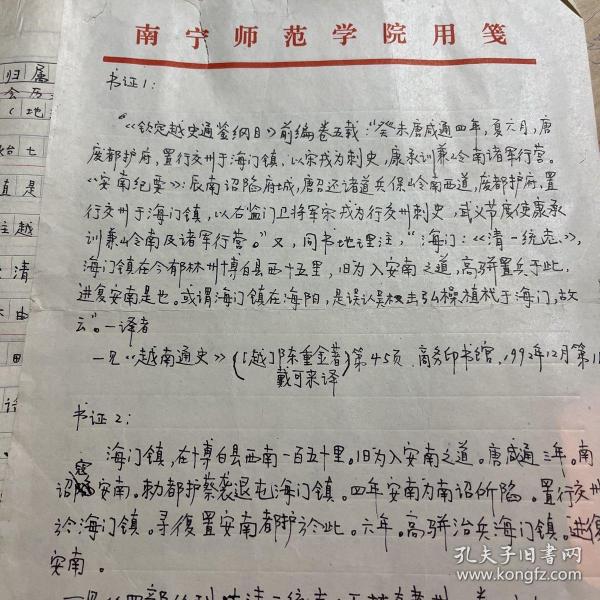 南宁师范学院用笺
书证1：
《钦定越史通鉴纲目》前编卷五载："癸未唐咸通四年，夏六月，唐
废都护府，置行交州于海门镇，以宋戎为刺史，康承训兼岭南诸军行营。
《安南纪要》：辰南诏陷府城，唐召还诸道兵保岭南西道，废都护府，置
行交州于海门镇，以右监门卫将军宋戎为行交州刺史，武义节度使康承
训兼岭南及诸军行营。"又，同书地理注，"海门：《清一统志》，
海门镇在今郁林州博白县西十五里，旧为入安南之道，高骈置兵于此，
进复安南是也。或谓海门镇在海阳，是误认吴权击弘操，植杙于海门，故
云"。—译者
—见《越南通史》([越]陈重金著 第45页，商务印书馆，1992年12月第1
戴可来译
书证2：
海门镇，在博白县西南一百五十里。旧为入安南之道。唐咸通三年。南
诏寇安南。勅都护蔡袭退屯海门镇。四年安南为南诏所陷。置行交州
於海门镇。寻復置安南都护於此。六年。高骈治兵海门镇。进復
安南。
归属
(地
始七
值是
越
清
由
孔夫子旧书网
www.kongfz.com